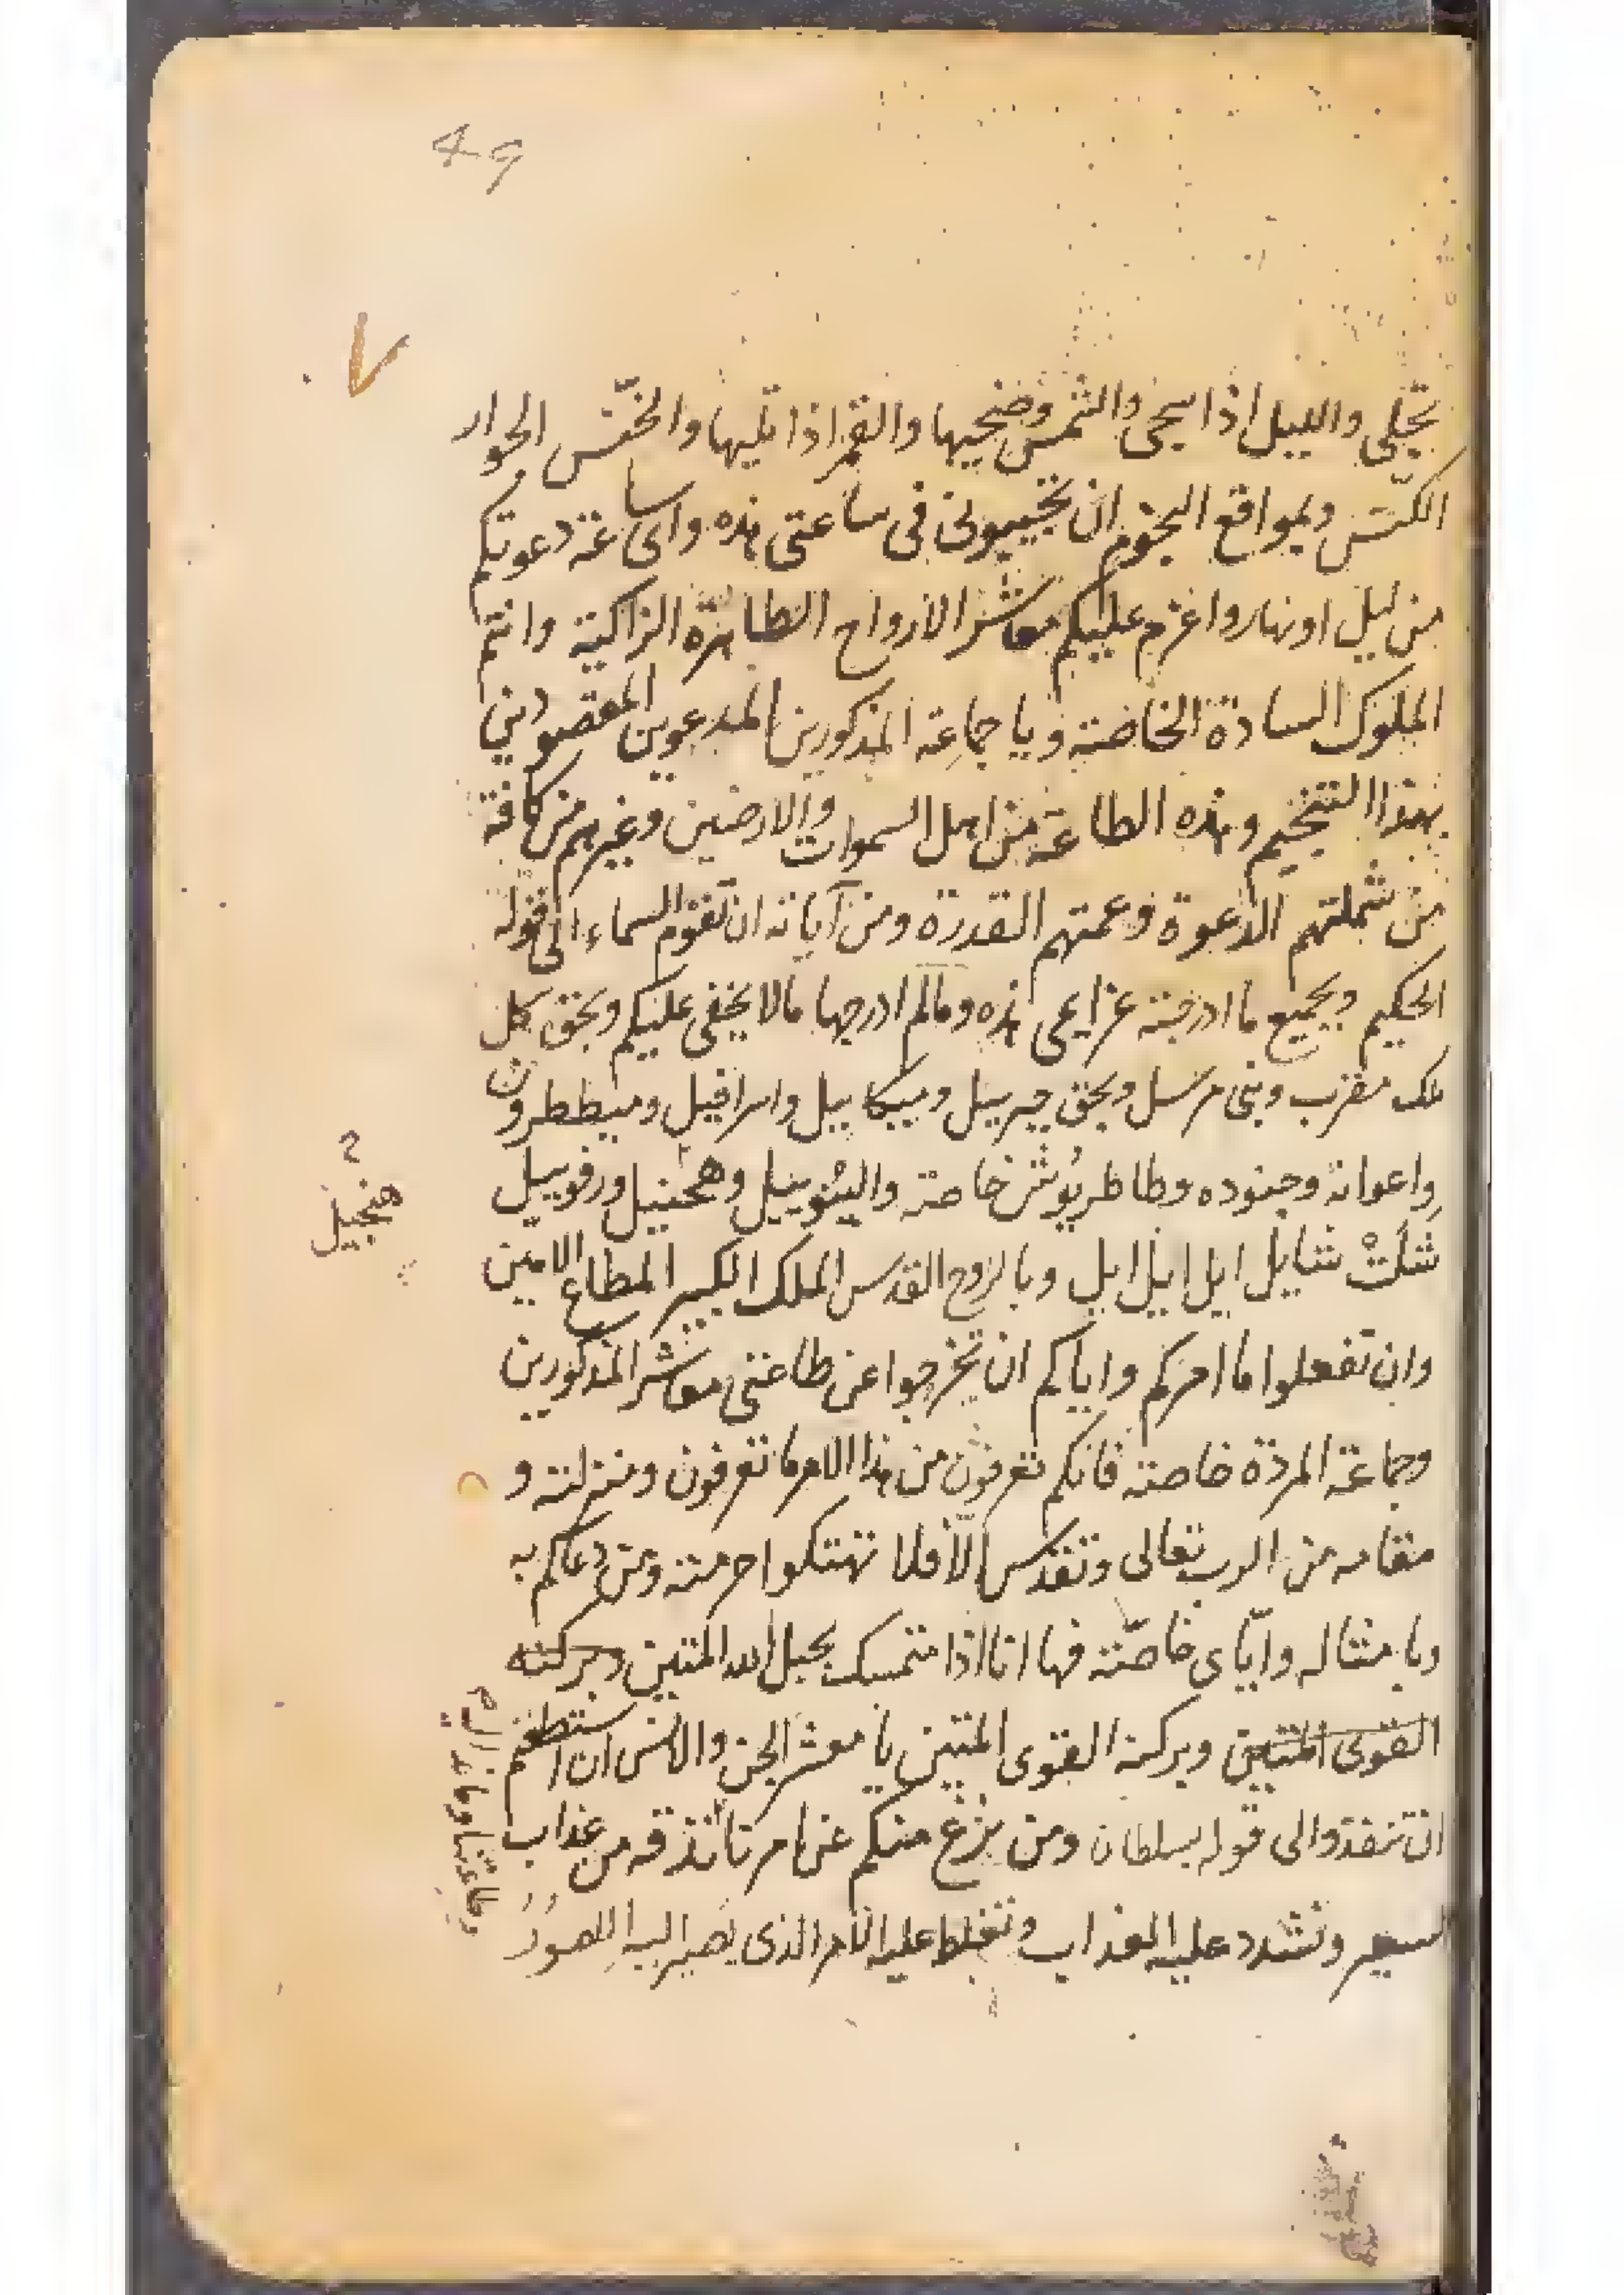 49
تجلى والليل اذا سجى والشمس وضحيها والقمر اذا تليها والخنّس الجوار
الكنّس وبمواقع النجوم ان تجيبونى فى ساعتى هذه واى ساعة دعوتكم
من ليل او نهار واعزم عليكم معاشر الارواح الطاهرة الزاكية وانتم
الملوك السادة الخاضة ويا جماعة المذكورين المدعوين المقصودين
بهذا التنجيم وهذه الطاعة من اهل السموات والارضين وغيرهم من كافة
من شملتهم الدعوة وعمتهم القدرة ومن آياته ان تقوم السماء الى قوله
الحكيم وبجميع ما ادرجته عزايمى هذه ومالم ادرجها مالا يخفى عليكم وبحق كل
ملك مقرب ونبى مرسل وبحق جبرييل وميكاييل واسرافيل وميططرون
واعوانه وجنوده وطاطريوش خاصة واليثوييل وهمجنيل ورفوييل
شلث شايل ايل ايل ايل وبالروح القدس الملك الكبير المطاع الامين
وان تفعلوا ما امركم واياكم ان تخرجوا عن طاعتى معاشر المذكورين
وجماعة المردة خاصة فانكم تعرفون من هذا الامر ما تعرفون ومنزلته و
مقامه من الرب تعالى وتقدس الّا فلا تهتكوا حرمته ومن دعاكم به
وبامثاله وايّاى خاصّة فها انا اذا متمسك بحبل الله المتين وبركته
القوى المتين وبركة القوى المتين يا معشر الجن والانس ان استطعتم
ان تنفذوا الى قوله بسلطان ومن يزغ منكم عن امرنا نذقه من عذاب
السعير ونشدد عليه العذاب ونغلط عليه الامر الذى يصير اليه
هنجيل